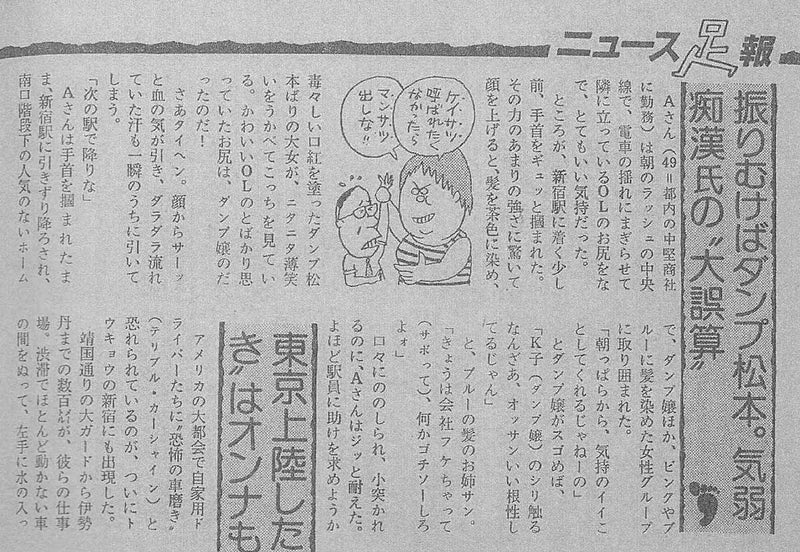 ニュース足報
振りむけばダンプ松本。気弱
痴漢氏の〝大誤算〟
Aさん(49=都内の中堅商社
に勤務)は朝のラッシュの中央
線で、電車の揺れにまぎらせて
隣に立っているOLのお尻をな
で、とてもいい気持だった。
ところが、新宿駅に着く少し
前、手首をギュッと摑まれた。
その力のあまりの強さに驚いて
顔を上げると、髪を茶色に染め、
ケイサツ
呼ばれたく
なかったら
マンサツ
出しな!!
毒々しい口紅を塗ったダンプ松
本ばりの大女が、ニタニタ薄笑
いをうかべてこっちを見てい
る。かわいいOLのとばかり思
っていたお尻は、ダンプ嬢のだ
ったのだ!
さあタイヘン。顔からサーッ
と血の気が引き、ダラダラ流れ
ていた汗も一瞬のうちに引いて
しまう。
「次の駅で降りな」
Aさんは手首を摑まれたま
ま、新宿駅に引きずり降ろされ、
南口階段下の人気のないホーム
で、ダンプ嬢ほか、ピンクやブ
ルーに髪を染めた女性グループ
に取り囲まれた。
「朝っぱらから、気持のイイこ
としてくれるじゃねーの」
とダンプ嬢がスゴめば、
「K子(ダンプ嬢)のシリ触る
なんざあ、オッサンいい根性し
てるじゃん」
と、ブルーの髪のお姉サン。
「きょうは会社フケちゃって
(サボって)、何かゴチソーしろ
よォ」
口々にののしられ、小突かれ
るのに、Aさんはジッと耐えた。
よほど駅員に助けを求めようか
東京上陸した
き〟はオンナも
アメリカの大都会で自家用ド
ライバーたちに〝恐怖の車磨き〟
(テリブル・カーシャイン)と
恐れられているのが、ついにト
ウキョウの新宿にも出現した。
靖国通りの大ガードから伊勢
丹までの数百㍍が、彼らの仕事
場。渋滞でほとんど動かない車
の間をぬって、左手に水の入っ